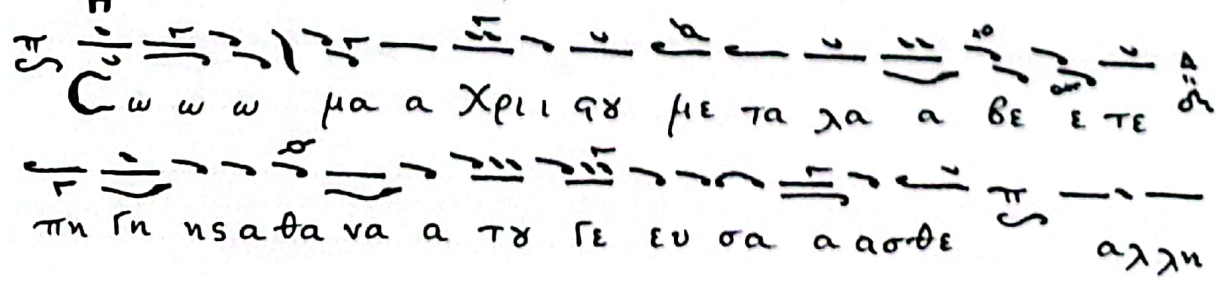 Σ ω ω ω μα α Χρι ι ϛȣ με τα λα α βε ε τε
πη γη ης α θα να α τȣ γε ευ σα α ασ θε αλ λη